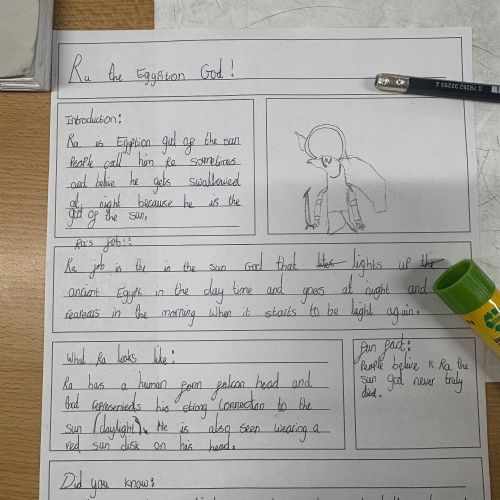 Ra the Eggption God!
Introduction:
Ra is Egyption gud of the sun
People call him Re sometimes
and belive he gets swallowed
at night because he is the
gud of the sun.
Ra's job:
Ra job is the in the sun God that lights up the
ancient Egypt in the day time and goes at night and
reapears in the morning when it starts to be light again.
What Ra looks like:
Ra has a human form falcon head and
that represends his strong connection to the
sun (daylight). He is also seen wearing a
red sun disk on his head.
fun fact:
People believe Ra the
sun god never truly
died.
Did you know: